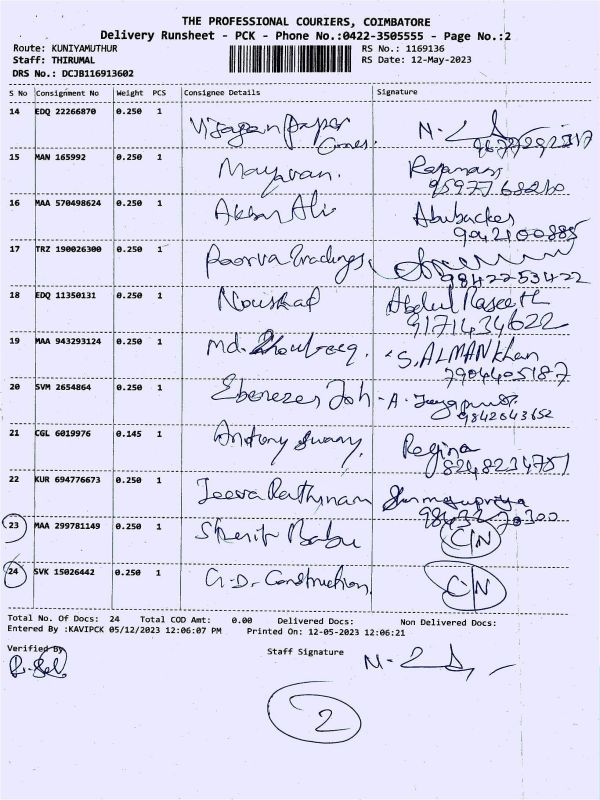 THE PROFESSIONAL COURIERS, COIMBATORE
Delivery Runsheet - PCK - Phone No.:0422-3505555 - Page No.:2
Route: KUNIYAMUTHUR RS No.: 1169136
Staff: THIRUMAL RS Date: 12-May-2023
DRS No.: DCJB116913602
S No Consignment No Weight PCS Consignee Details Signature
14 EDQ 22266870 0.250 1 Vijayan Paper N.
Cones.
15 MAN 165992 0.250 1 Mayavan.
9597768210
16 MAA 570498624 0.250 1 Akbar Ali Abubacker
9042100885
17 TRZ 190026300 0.250 1 Poorva Tradings,
9842253422
18 EDQ 11350131 0.250 1 Noushad Abdul Raseeth
9171434622
19 MAA 943293124 0.250 1 Md. S. ALMAN Khan
7904405187
20 SVM 2654864 0.250 1 Ebenezer Joh - A.
9842643652
21 CGL 6019976 0.145 1 Antony Swamy, Regina
8248234751
22 KUR 694776673 0.250 1 Jeeva Rathinam Shanmugapriya
23 MAA 299781149 0.250 1 Babu C/N
24 SVK 15026442 0.250 1 G.D. Construction, C/N
Total No. Of Docs: 24 Total COD Amt: 0.00 Delivered Docs: Non Delivered Docs:
Entered By :KAVIPCK 05/12/2023 12:06:07 PM Printed On: 12-05-2023 12:06:21
Verified By Staff Signature
2